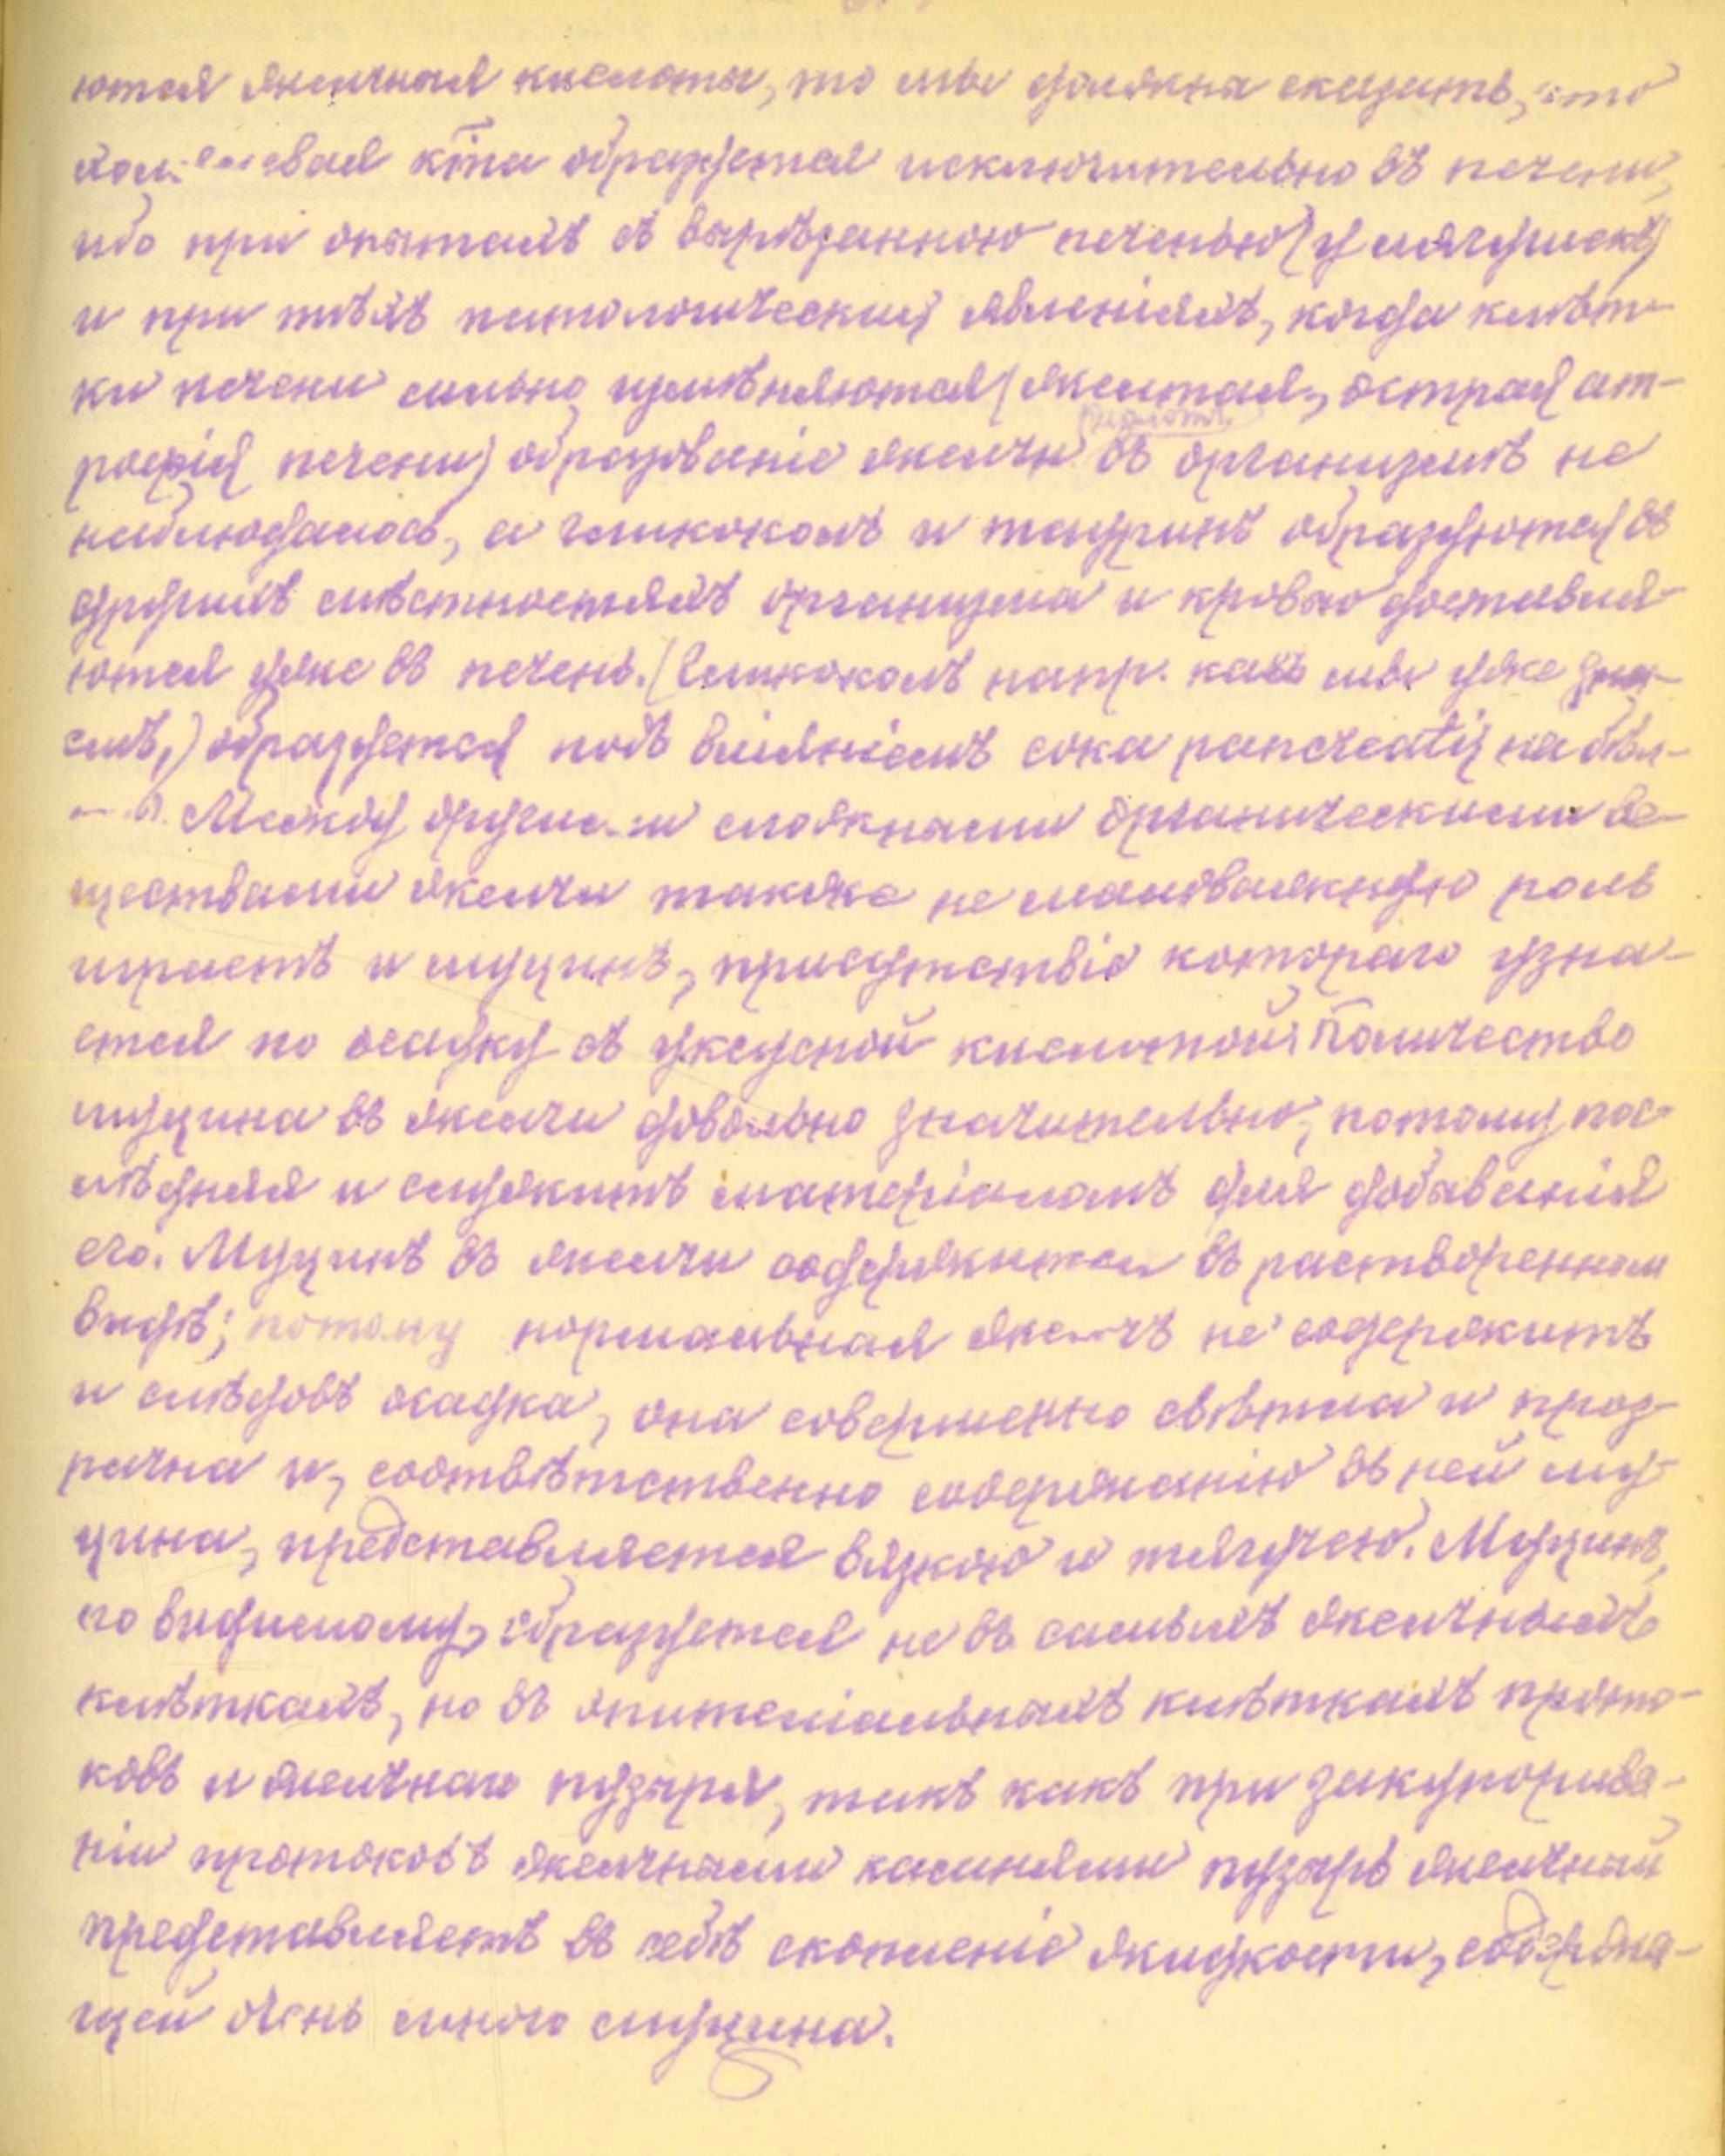 ются желчныя кислоты, то мы должны сказать, что
холалевая к̅та образуется исключительно въ печени,
ибо при опытахъ съ вырѣзанною печенью (у лягушекъ)
и при тѣхъ патологическихъ явленіяхъ, когда клѣт-
ки печени сильно измѣняются (желтая, острая ат-
рофія печени) образованіе желчи въ организмѣ не
наблюдалось, а гликоколъ и тауринъ образуются въ
другихъ мѣстностяхъ организма и кровью доставля-
ются уже въ печень. (Гликоколъ напр. какъ мы уже зна-
емъ,) образуется подъ вліяніемъ сока pancreatis на бѣл-
Между другими сложными органическими ве-
ществами желчи также не маловажную роль
играетъ и муцинъ, присутствіе котораго узна-
ется по осадку съ уксусной кислотой. Количество
муцина въ желчи довольно значительно, потому пос-
лѣдняя и служитъ матеріаломъ для добыванія
его. Муцинъ въ желчи содержится въ растворенном
видѣ; потому нормальная желчь не содержитъ
и слѣдовъ осадка, она совершенно свѣтла и проз-
рачна и, соотвѣтственно содержанію въ ней му-
цина, представляется вязкою и тягучею. Муцинъ,
по видимому, образуется не въ самыхъ желчныхъ
клѣткахъ, но въ эпителіальныхъ клѣткахъ прото-
ковъ и желчнаго пузыря, такъ какъ при закупорива-
ніи протоковъ желчными камнями пузырь желчный
представляетъ въ себѣ скопленіе жидкости, содержа-
щей очень много муцина.